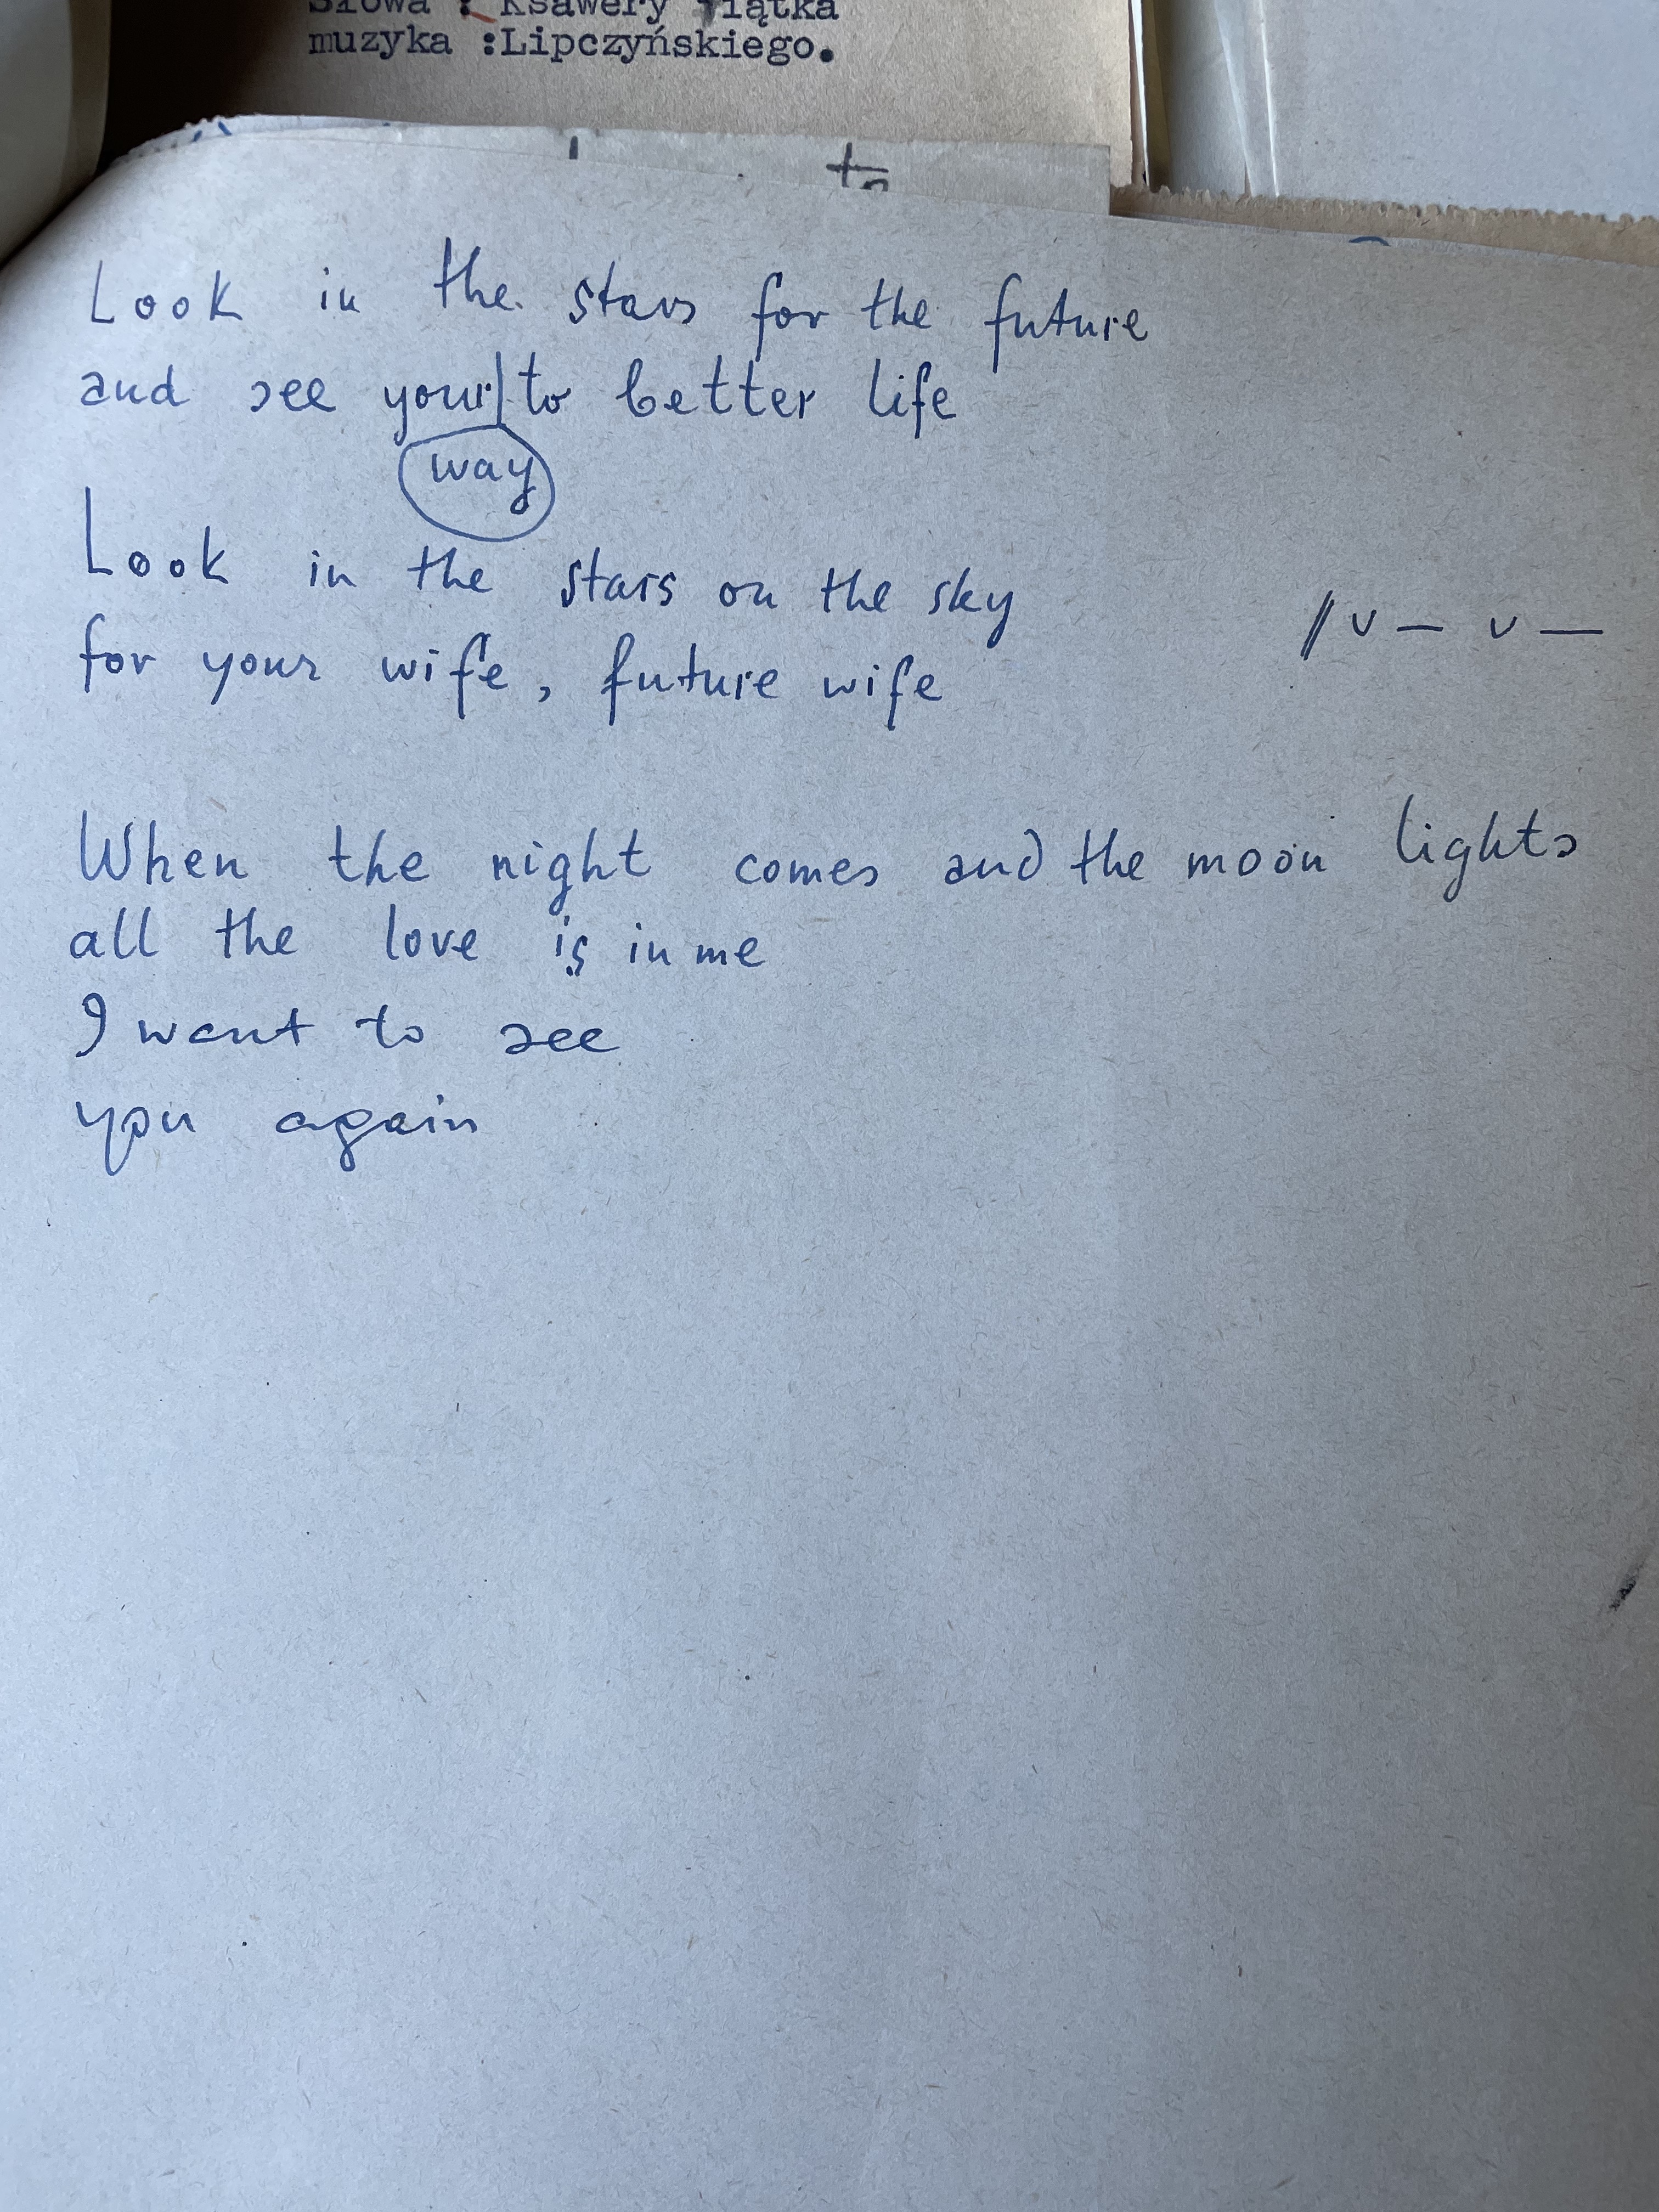 Słowa : Ksawery Piątka
muzyka :Lipczyńskiego.
Look in the stars for the future
and see your way to better life
Look in the stars on the sky
for your wife, future wife
// v — v —
When the night comes and the moon lights
all the love is in me
I want to see
you again